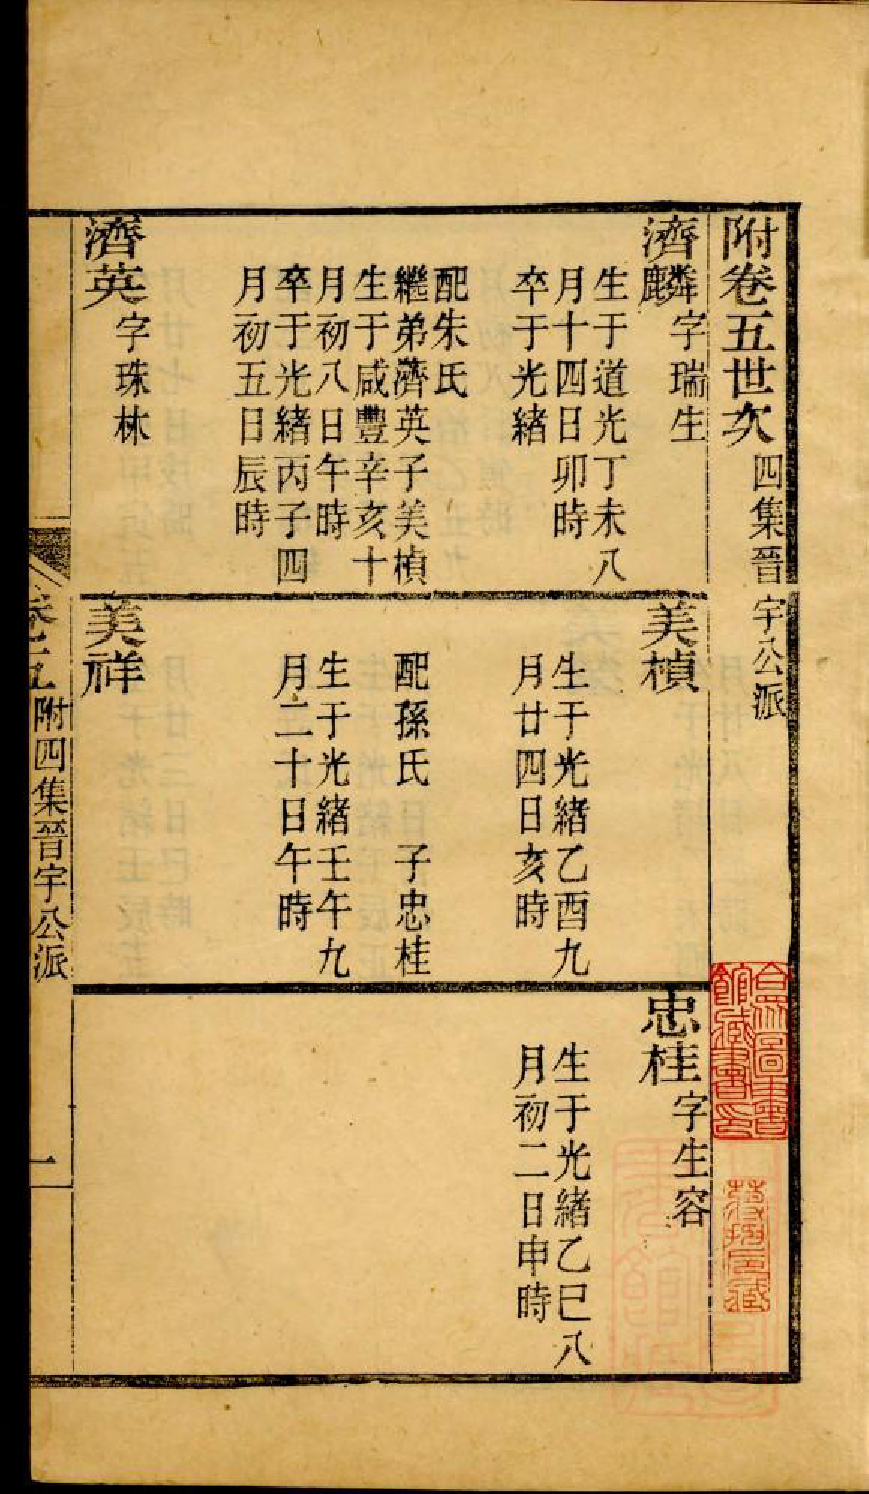 附卷五世次 四集晉宇公派
濟麟 字瑞生
生于道光丁未八
月十四日卯時
卒于光緒
配朱氏
繼弟濟英子美楨
生于咸豐辛亥十
月初八日午時
卒于光緒丙子四
月初五日辰時
濟英 字珠林
美楨
生于光緒乙酉九
月廿四日亥時
配孫氏 子忠桂
生于光緒壬午九
月二十日午時
美祥
忠桂 字生容
生于光緒乙巳八
月初二日申時
附四集晉宇公派
一